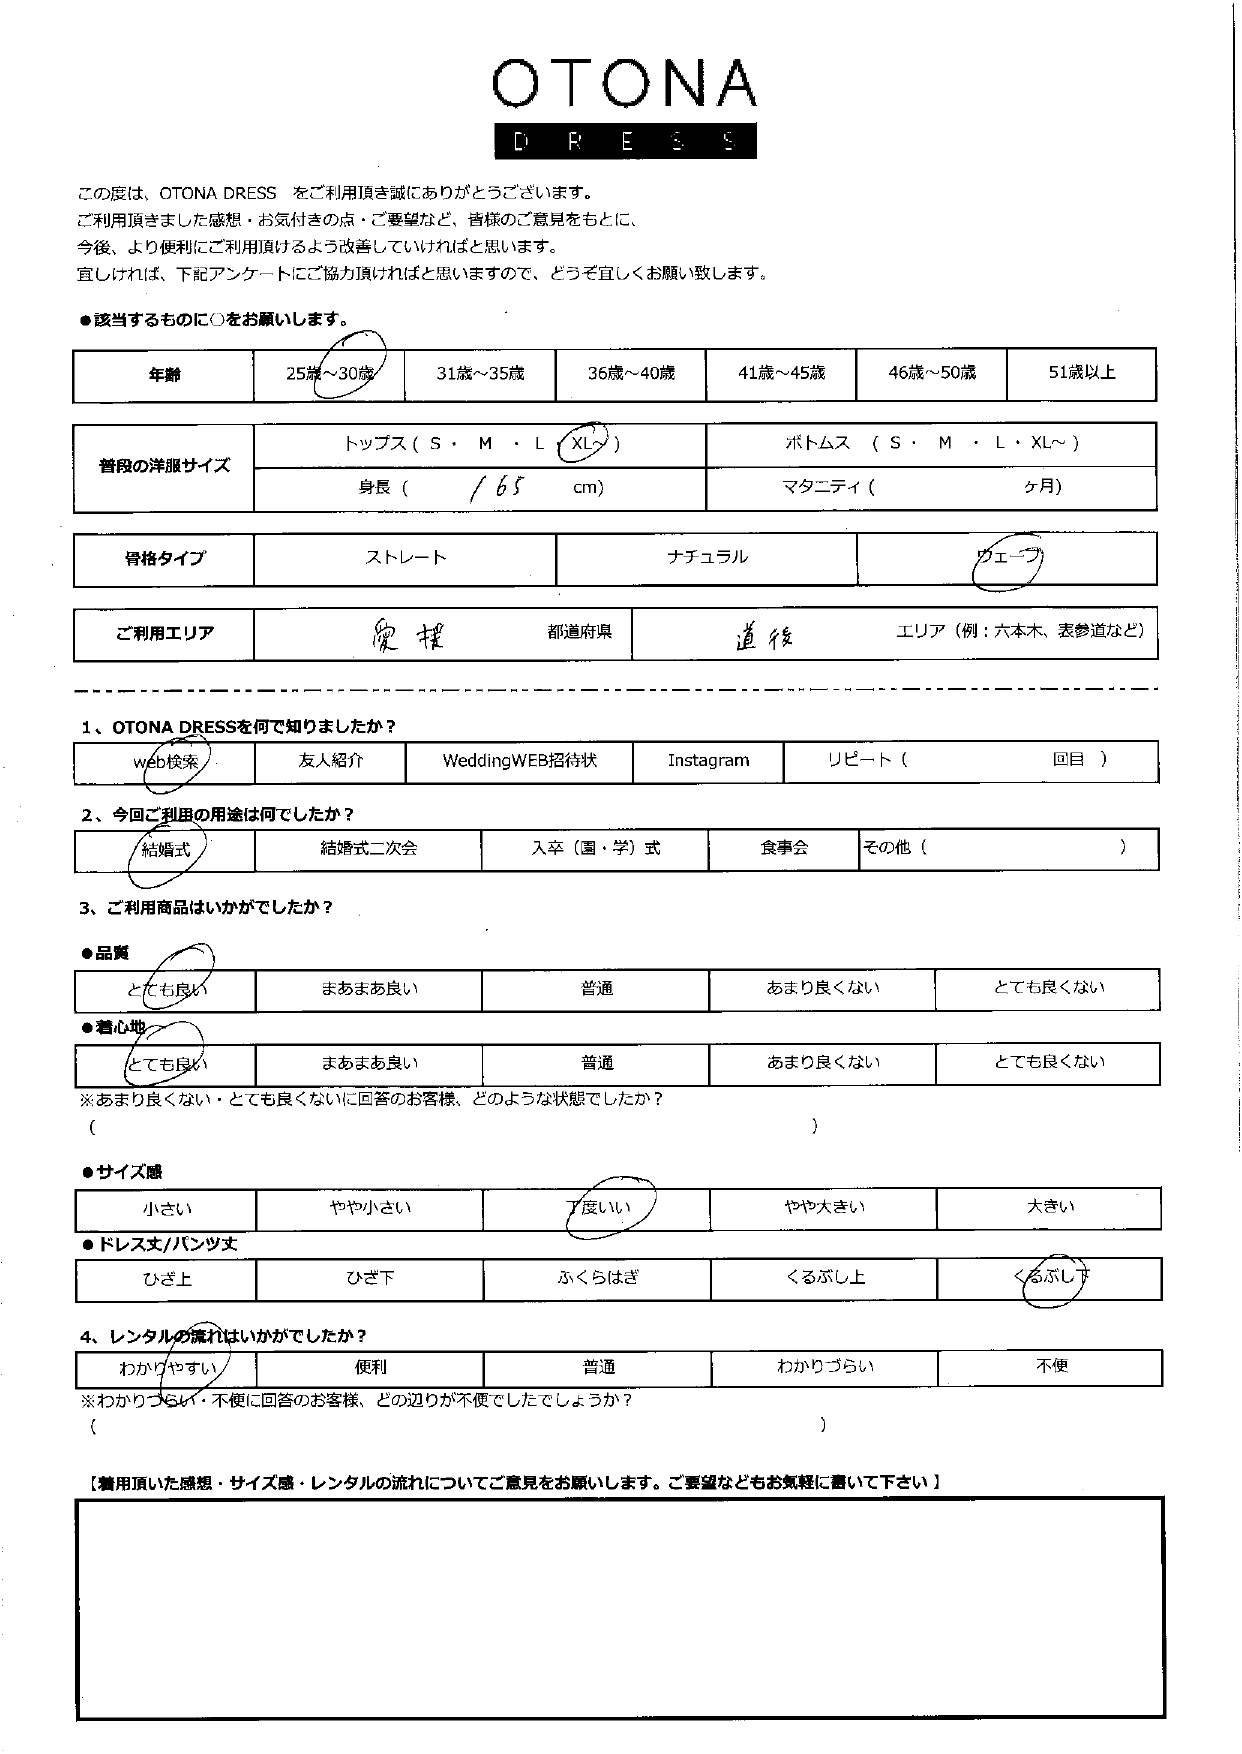 OTONA
DRESS
この度は、OTONA DRESS　をご利用頂き誠にありがとうございます。
ご利用頂きました感想・お気付きの点・ご要望など、皆様のご意見をもとに、
今後、より便利にご利用頂けるよう改善していければと思います。
宜しければ、下記アンケートにご協力頂ければと思いますので、どうぞ宜しくお願い致します。
●該当するものに○をお願いします。
年齢 25歳～30歳 31歳～35歳 36歳～40歳 41歳～45歳 46歳～50歳 51歳以上
普段の洋服サイズ トップス ( S ・ M ・ L ・ XL～ ) ボトムス ( S ・ M ・ L ・ XL～ )
身長 ( 165 cm) マタニティ ( ヶ月)
骨格タイプ ストレート ナチュラル ウェーブ
ご利用エリア 愛媛 都道府県 道後 エリア（例：六本木、表参道など）
1、OTONA DRESSを何で知りましたか？
web検索 友人紹介 WeddingWEB招待状 Instagram リピート ( 回目 )
2、今回ご利用の用途は何でしたか？
結婚式 結婚式二次会 入卒（園・学）式 食事会 その他 ( )
3、ご利用商品はいかがでしたか？
●品質
とても良い まあまあ良い 普通 あまり良くない とても良くない
●着心地
とても良い まあまあ良い 普通 あまり良くない とても良くない
※あまり良くない・とても良くないに回答のお客様、どのような状態でしたか？
( )
●サイズ感
小さい やや小さい 丁度いい やや大きい 大きい
●ドレス丈/パンツ丈
ひざ上 ひざ下 ふくらはぎ くるぶし上 くるぶし下
4、レンタルの流れはいかがでしたか？
わかりやすい 便利 普通 わかりづらい 不便
※わかりづらい・不便に回答のお客様、どの辺りが不便でしたでしょうか？
( )
【着用頂いた感想・サイズ感・レンタルの流れについてご意見をお願いします。ご要望などもお気軽に書いて下さい】